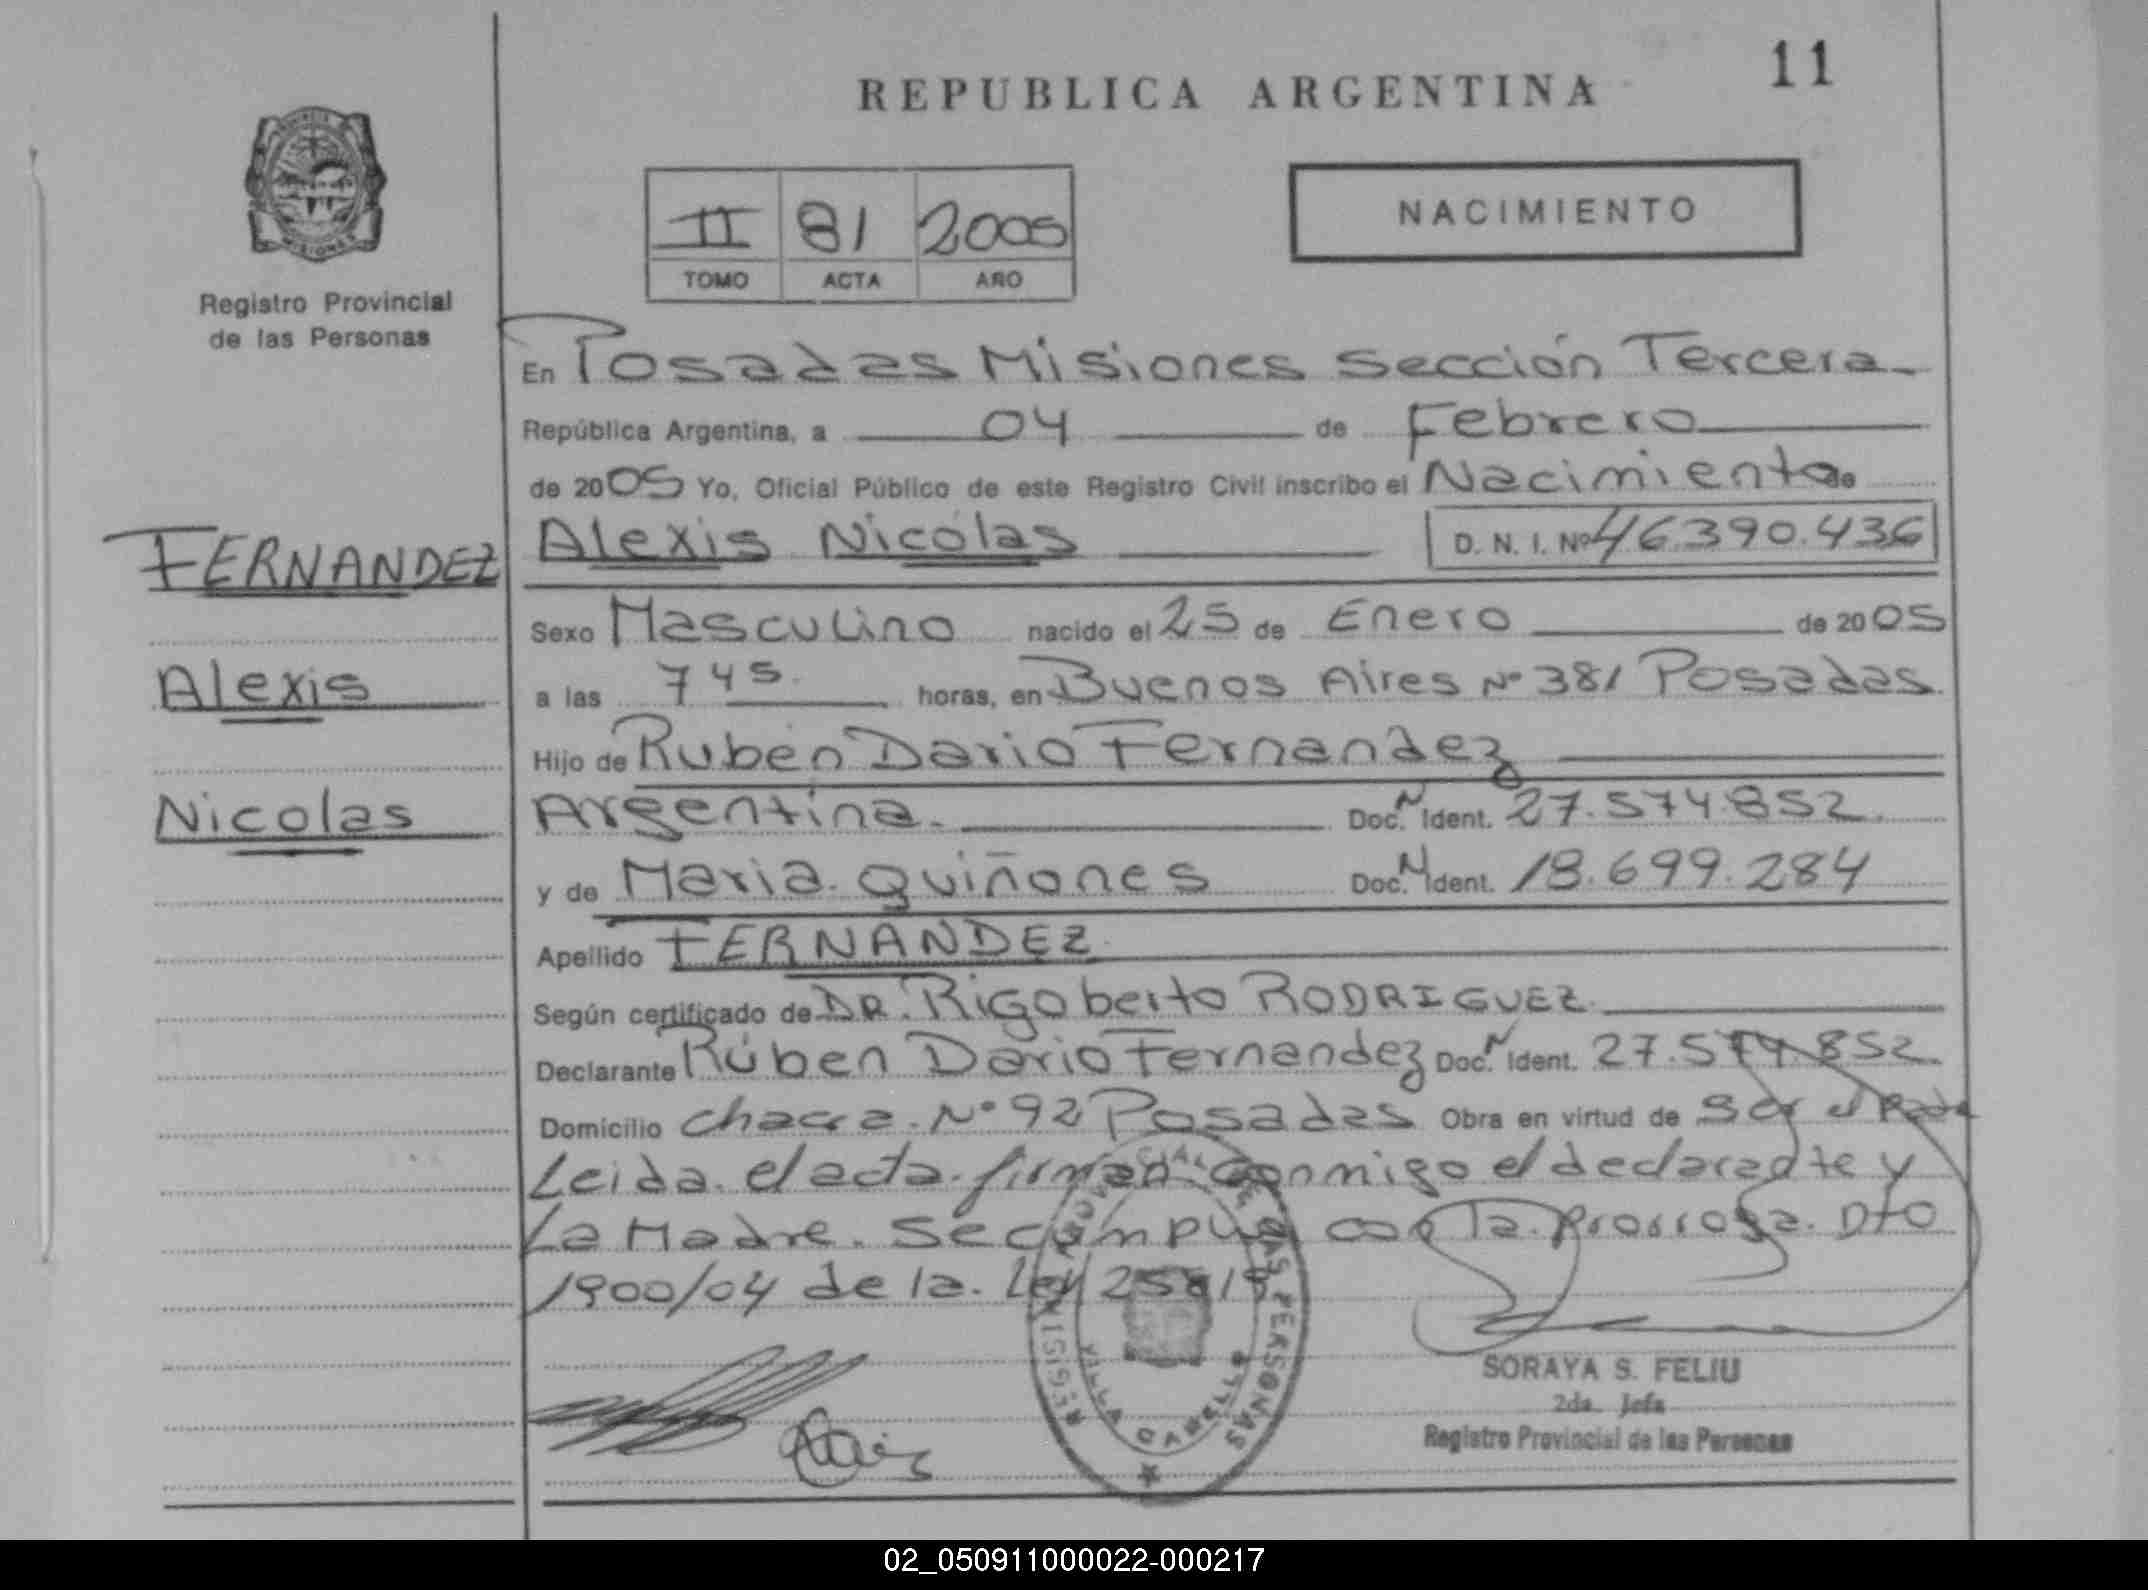 REPUBLICA ARGENTINA
11
PROVINCIA
MISIONES
Registro Provincial
de las Personas
II 81 2005
TOMO ACTA AÑO
NACIMIENTO
En Posadas Misiones Sección Tercera
República Argentina, a 04 de Febrero
de 2005 Yo, Oficial Público de este Registro Civil inscribo el Nacimiento de
FERNANDEZ
Alexis
Nicolas
Alexis Nicolas D. N. I. Nº 46.390.436
Sexo Masculino nacido el 25 de Enero de 2005
a las 7 45 horas, en Buenos Aires Nº 381 Posadas
Hijo de Rubén Dario Fernandez
Argentina. Doc. N Ident. 27.574.852
y de Maria Quiñones Doc. N Ident. 18.699.284
Apellido FERNANDEZ
Según certificado de DR. Rigoberto RODRIGUEZ
Declarante Rúben Dario Fernandez Doc. N Ident. 27.574.852
Domicilio chacra Nº 92 Posadas Obra en virtud de Ser el Padre
Leida el acta firman conmigo el declarante y
La Madre. Se cumple con la Prorroga. Dto
1900/04 de la Ley 25819
REGISTRO PROVINCIAL DE LAS PERSONAS
VILLA CABELLO
SORAYA S. FELIU
2da. Jefa
Registro Provincial de las Personas
02_050911000022-000217